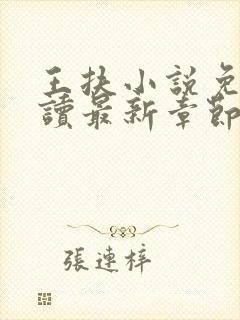 王扶小說免
讀最新章節
張連梓